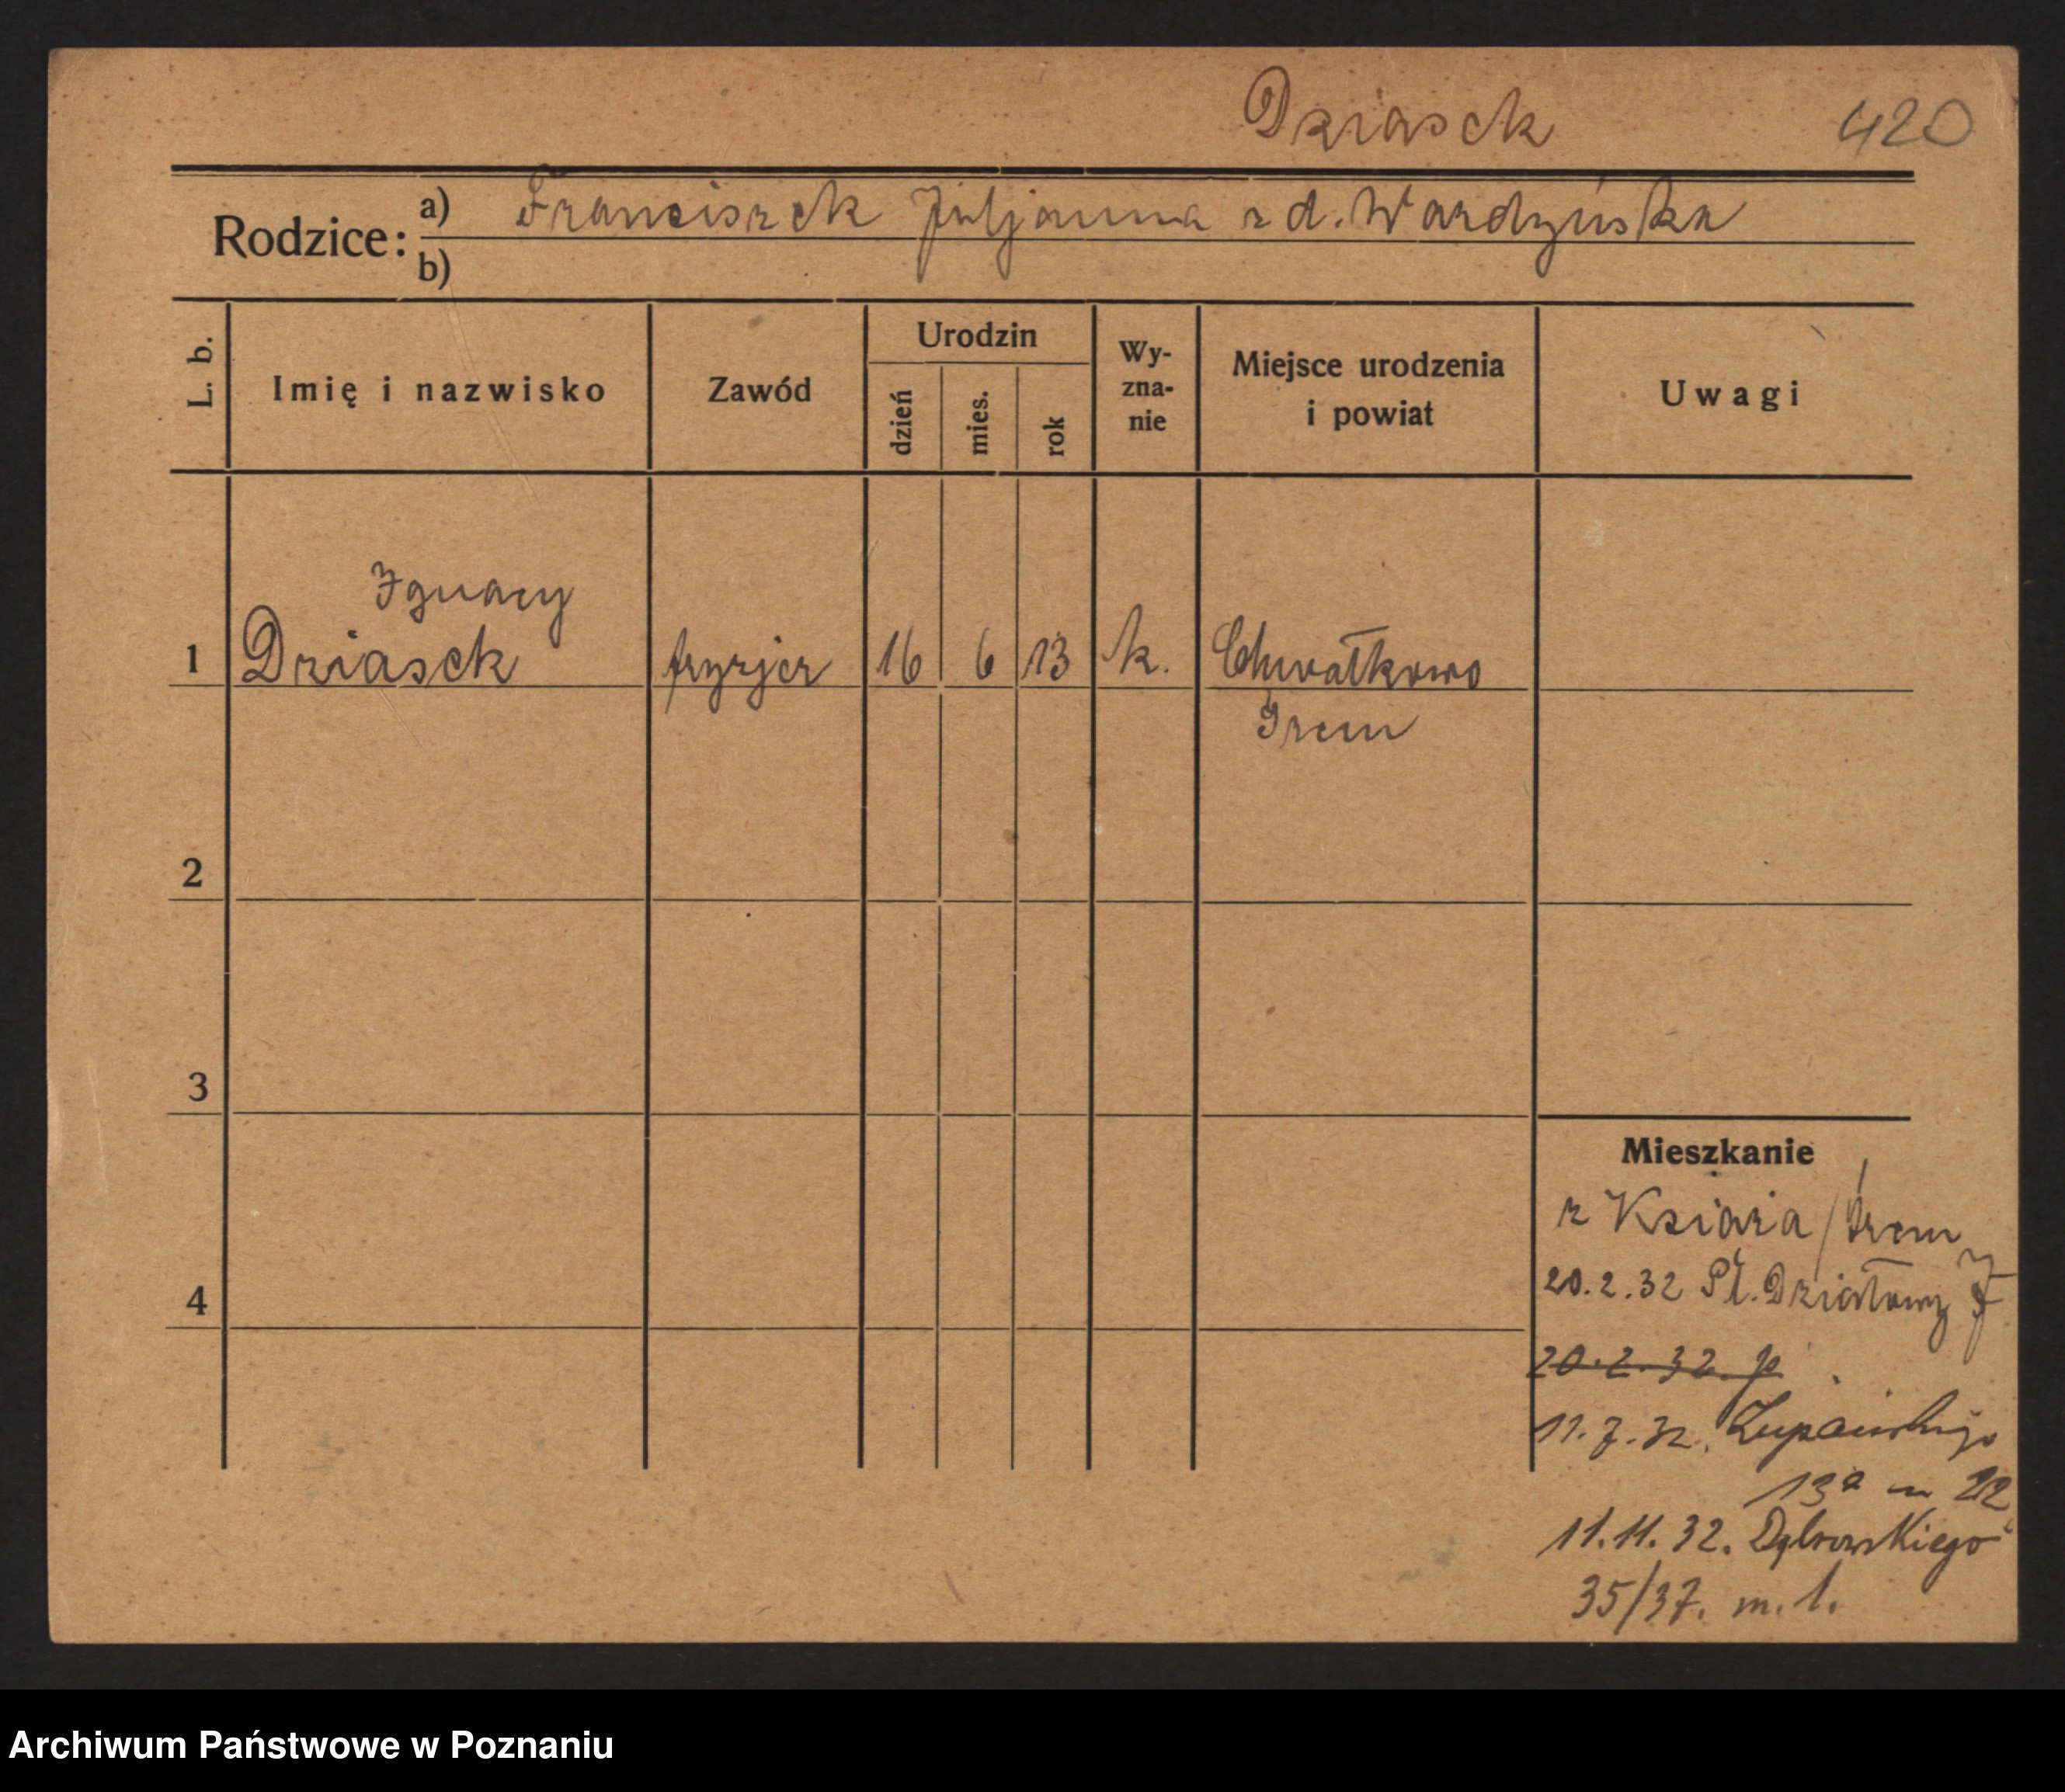 Dziasek 420
Rodzice: a) Franciszek Juljanna z d. Wardzyńska
b)
L. b. Imię i nazwisko Zawód Urodzin dzień mies. rok Wy-zna-nie Miejsce urodzenia i powiat Uwagi
Ignacy
1 Dziasek fryzjer 16 6 13 k. Chwałkowo
Śrem
2
3
Mieszkanie
z Książa / Śrem
4
20.2.32 Pl. Działowy 7
20.2.32. p
11.7.32. Żupańskiego
13a m 22
11.11.32. Dąbrowskiego
35/37. m. 1.
Archiwum Państwowe w Poznaniu